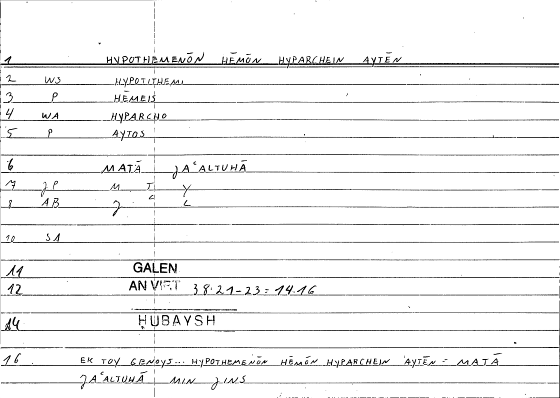 1 HYPOTHEMENŌN HĒMŌN HYPARCHEIN AYTĒN
2 WS HYPOTITHEMI
3 P HĒMEIS
4 WA HYPARCHO
5 P AYTOS
6 MATĀ JAʿALTUHĀ
7 JP M T Y
8 AB J ʿ L
10 SA
11 GALEN
12 AN VIRT 38:21-23 = 14.16
14 ḤUBAYSH
16 EK TOY GENOYS... HYPOTHEMENŌN HĒMŌN HYPARCHEIN AYTĒN = MATĀ
JAʿALTUHĀ MIN JINS